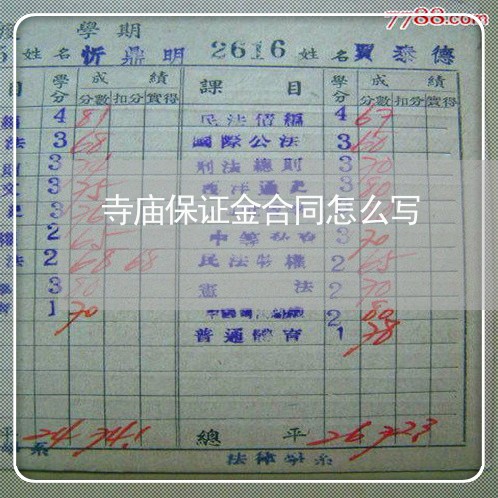 7788.com
學期
姓名 忻鼎明 2616 姓名 賈泰德
目 學分 成績 分數 扣分 實得 課目 學分 成績 分數 扣分 實得
4 81 民法債編 4 67
法 3 68 國際公法 3 60
3 刑法總則 3 70
3 75 3 80
寺庙保证金合同怎么写
2 65 3 70
法 2 68 68 民法物權 2 65
3 80 憲法 2 70
1 70 2 80
普通體育 1 78
平 24 74.1 總平 26 72.3
系 法律學系